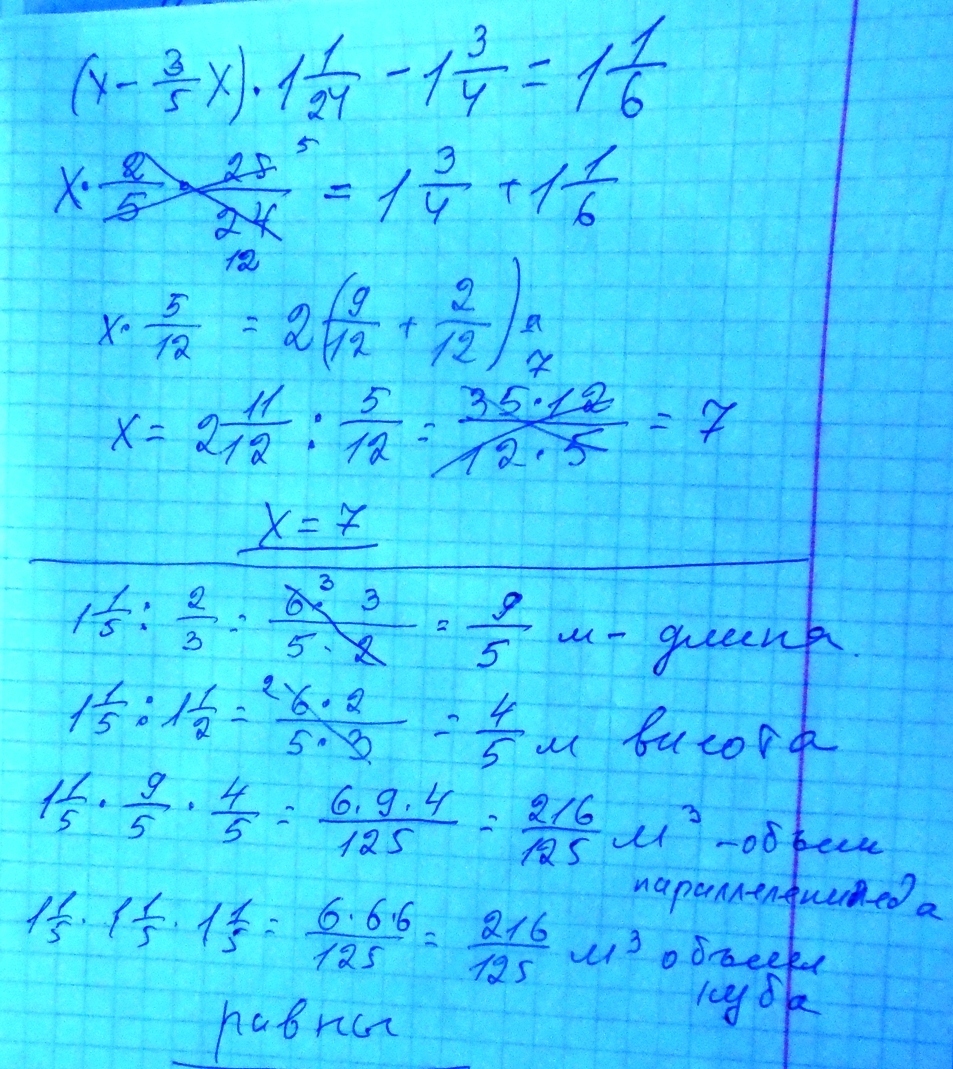 (x - 3/5 x) · 1 1/24 - 1 3/4 = 1 1/6
x · 2/5 · 25/24 = 1 3/4 + 1 1/6
5
12
x · 5/12 = 2(9/12 + 2/12)
7
x = 2 11/12 : 5/12 = 35·12/12·5 = 7
x = 7
1 1/5 : 2/3 = 6·3/5·2 = 9/5 м - длина
3
1 1/5 : 1 1/2 = 6·2/5·3 = 4/5 м высота
2
1 1/5 · 9/5 · 4/5 = 6·9·4/125 = 216/125 м³ - объем
параллелепипеда
1 1/5 · 1 1/5 · 1 1/5 = 6·6·6/125 = 216/125 м³ объем
куба
равны